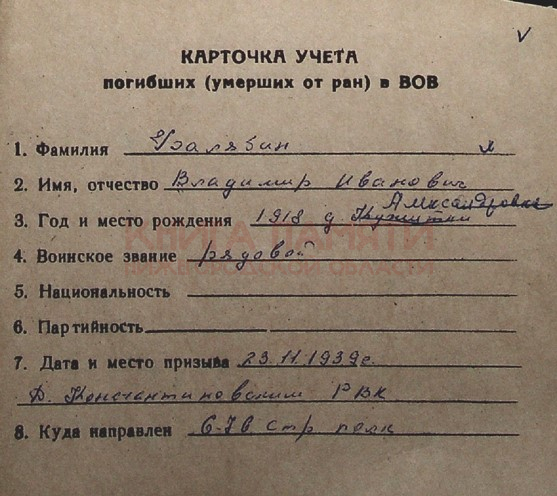 V
КАРТОЧКА УЧЕТА
погибших (умерших от ран) в ВОВ
1. Фамилия Узалябин я
2. Имя, отчество Владимир Иванович
Александровка
3. Год и место рождения 1918 д.
КНИГА ПАМЯТИ
4. Воинское звание рядовой
НИЖЕГОРОДСКОЙ ОБЛАСТИ
5. Национальность
6. Партийность
7. Дата и место призыва 23.11.1939г.
Д. Константиновским РВК
8. Куда направлен стр полк